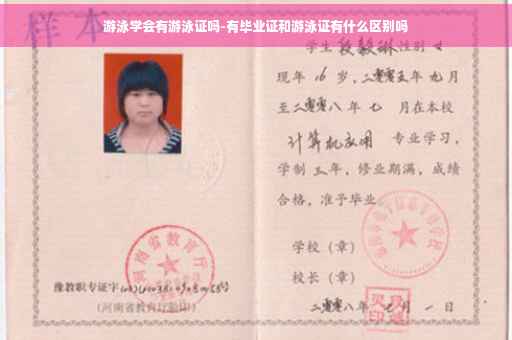 游泳学会有游泳证吗-有毕业证和游泳证有什么区别吗
样本
学生段毅琳性别女
现年16岁，二零零五年九月
至二零零八年七月在本校
计算机应用 专业学习，
学制三年，修业期满，成绩
合格，准予毕业。
学校（章）
校长（章）
二零零八年七月一日
河南省教育厅
豫教职专证字
（河南省教育厅验印）